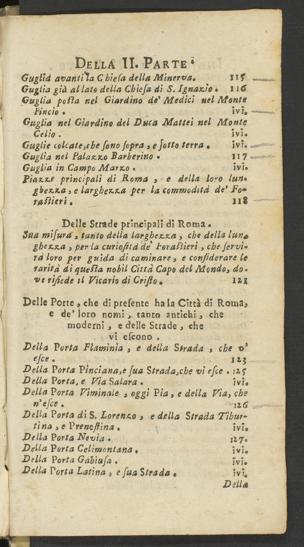 DELLA II. PARTE
Guglia avanti la Chiesa della Minerva. 115
Guglia già al lato della Chiesa di S. Ignazio. 116
Guglia posta nel Giardino de' Medici nel Monte
Pincio. ivi.
Guglia nel Giardino del Duca Mattei nel Monte
Celio. ivi.
Guglie colcate, che sono sopra, e sotto terra. ivi.
Guglia nel Palazzo Barberino. 117
Guglia in Campo Marzo. ivi.
Piazze principali di Roma, e della loro lun
ghezza, e larghezza per la commodità de' Fo-
rastieri. 118
Delle Strade principali di Roma.
Sua misura, tanto della larghezza, che della lun-
ghezza, per la curiosità de' Forastieri, che servi-
rà loro per guida di caminare, e considerare le
rarità di questa nobil Città Capo del Mondo, do-
ve risiede il Vicario di Cristo. 121
Delle Porte, che di presente ha la Città di Roma,
e de' loro nomi, tanto antichi, che
moderni, e delle Strade, che
vi escono.
Della Porta Flaminia, e della Strada, che v'
esce. 123
Della Porta Pinciana, e sua Strada, che vi esce. 125
Della Porta, e Via Salara. ivi.
Della Porta Viminale, oggi Pia, e della Via, che
n'esce. 126
Della Porta di S. Lorenzo, e della Strada Tibur-
tina, e Prenestina. ivi.
Della Porta Nevia. 127.
Della Porta Celimontana. ivi.
Della Porta Gabiusa. ivi.
Della Porta Latina, e sua Strada. ivi.
Della